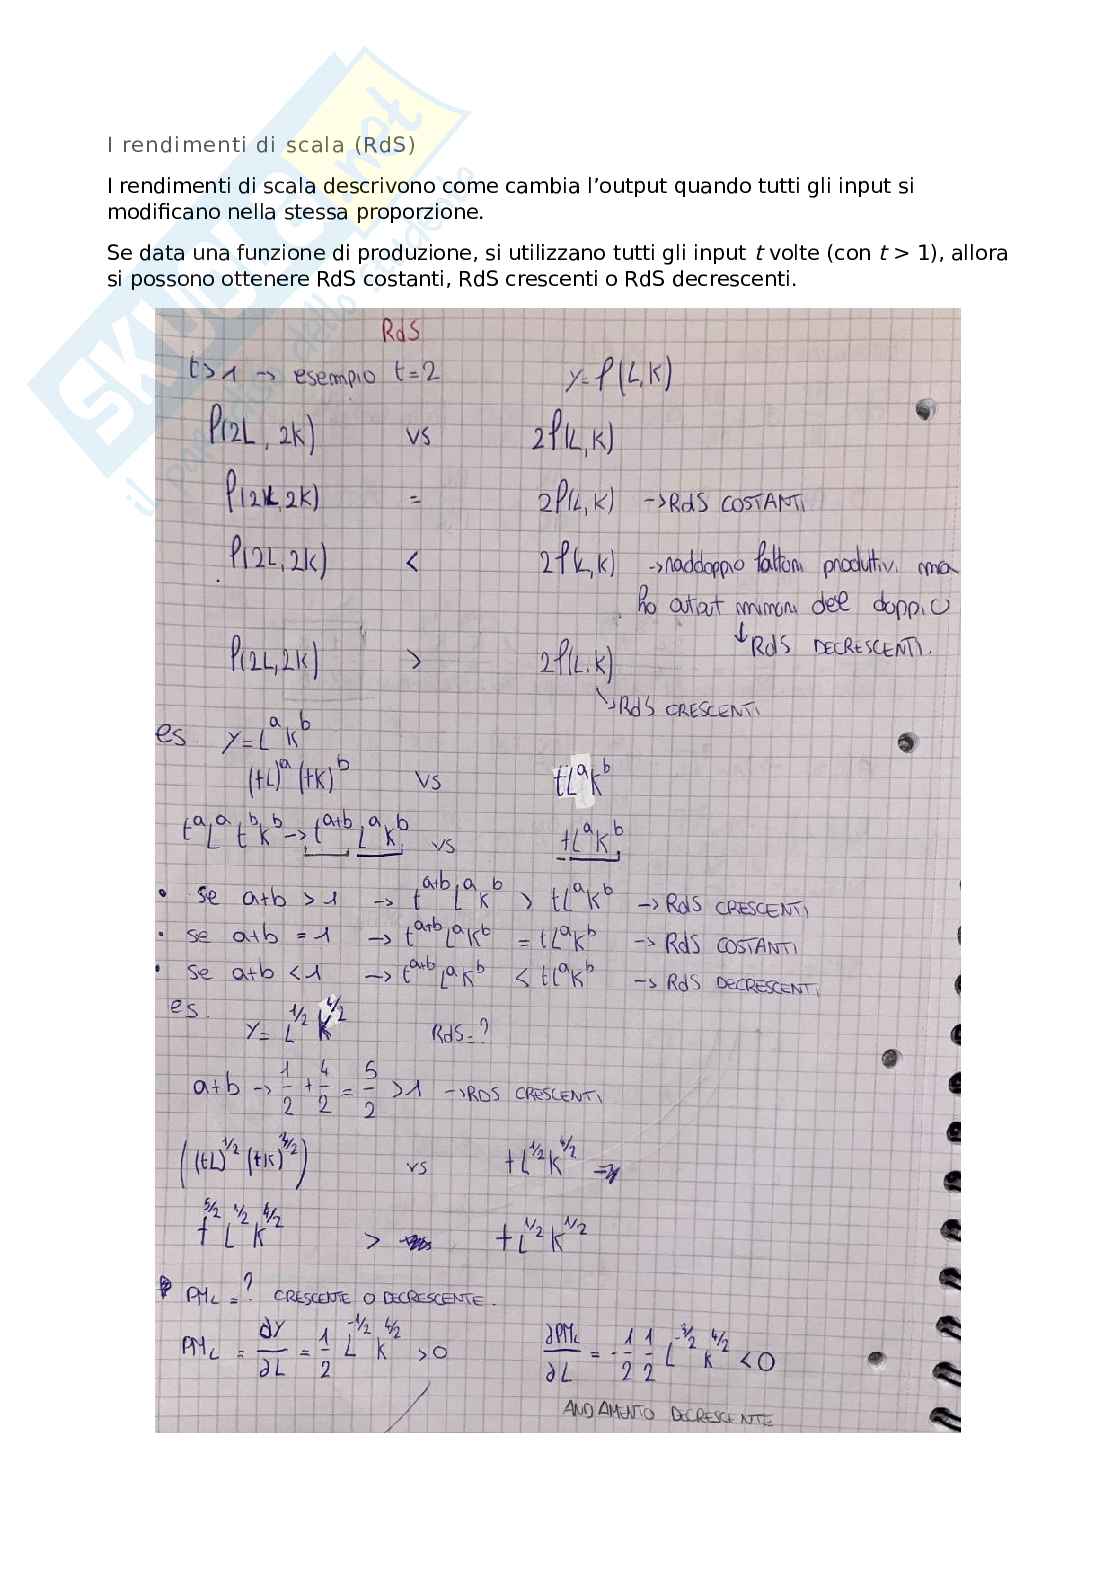 SKUOLA.net
il paradiso dello studente
I rendimenti di scala (RdS)
I rendimenti di scala descrivono come cambia l’output quando tutti gli input si
modificano nella stessa proporzione.
Se data una funzione di produzione, si utilizzano tutti gli input t volte (con t > 1), allora
si possono ottenere RdS costanti, RdS crescenti o RdS decrescenti.
RdS
t>1 → esempio t=2 y=f(L,K)
f(2L, 2K) vs 2f(L,K)
f(2L,2K) = 2f(L,K) → RdS COSTANTI
f(2L,2K) < 2f(L,K) → raddoppio fattori produttivi ma
ho output minori del doppio
↓ RdS DECRESCENTI.
f(2L,2K) > 2f(L.K)
→ RdS CRESCENTI
es y=L^a K^b
(tL)^a (tK)^b vs tL^a K^b
t^a L^a t^b K^b → t^a+b L^a K^b vs tL^a K^b
• se a+b > 1 → t^a+b L^a K^b > tL^a K^b → RdS CRESCENTI
• se a+b = 1 → t^a+b L^a K^b = tL^a K^b → RdS COSTANTI
• se a+b < 1 → t^a+b L^a K^b < tL^a K^b → RdS DECRESCENTI
es.
Y= L^1/2 K^4/2 RdS=?
a+b → 1/2 + 4/2 = 5/2 >1 → RDS CRESCENTI
((tL)^1/2 (tK)^4/2) vs tL^1/2 K^4/2
t^5/2 L^1/2 K^4/2 > tL^1/2 K^1/2
PM_L = ? CRESCENTE O DECRESCENTE.
PM_L = ∂Y/∂L = 1/2 L^-1/2 K^4/2 >0 ∂PM_L/∂L = - 1/2 1/2 L^-3/2 K^4/2 <0
ANDAMENTO DECRESCENTE